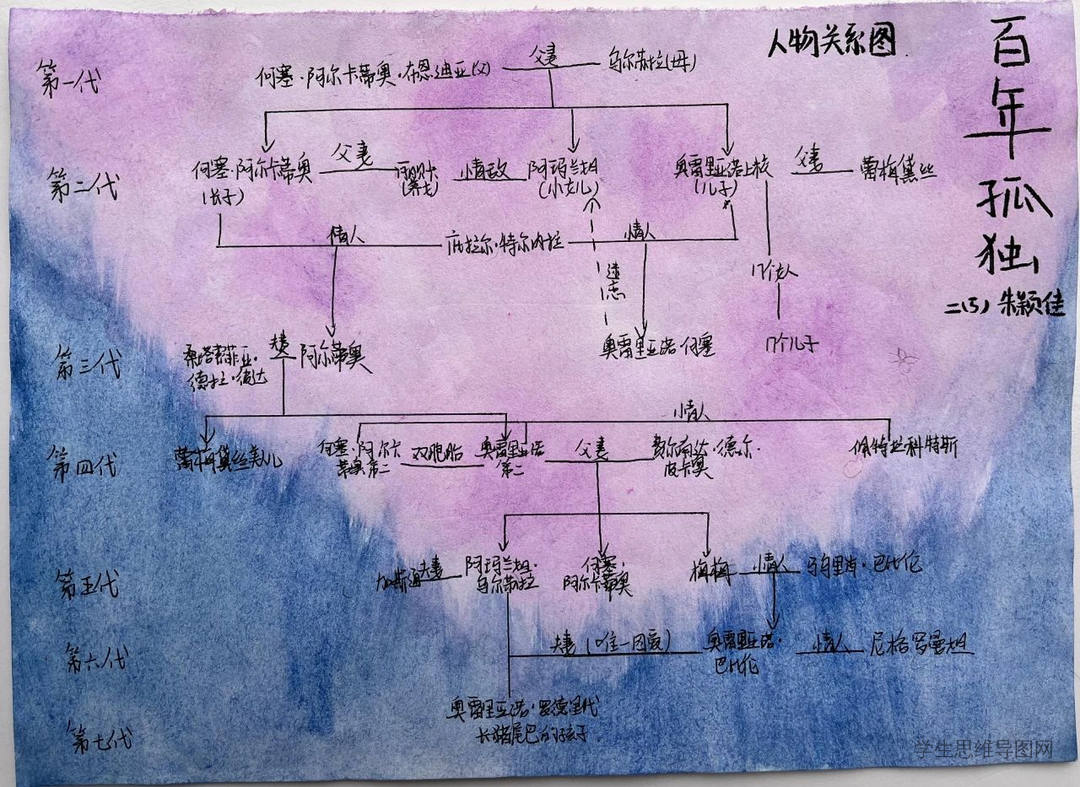 百年孤独
人物关系图
二(5) 朱颖佳
第一代
何塞·阿尔卡蒂奥·布恩迪亚(父)
夫妻
乌尔苏拉(母)
第二代
何塞·阿尔卡蒂奥
(长子)
夫妻
(养女)
情敌
阿玛兰妲
(小女儿)
奥雷里亚诺上校
(儿子)
夫妻
蕾梅黛丝
情人
庇拉尔·特尔内拉
情人
17个女人
第三代
桑塔索菲亚·
德拉·彼达
夫妻
阿尔蒂奥
奥雷里亚诺·何塞
17个儿子
情人
第四代
蕾梅黛丝美儿
何塞·阿尔卡
蒂奥第二
双胞胎
奥雷里亚诺
第二
夫妻
费尔南达·德尔·
皮卡奥
佩特拉科特斯
第五代
加斯通
夫妻
阿玛兰妲·
乌尔苏拉
何塞·
阿尔卡蒂奥
梅梅
情人
马乌里肖·巴比伦
第六代
夫妻(唯一因爱)
奥雷里亚诺·
巴比伦
情人
尼格罗曼妲
第七代
奥雷里亚诺·罗德里代
长猪尾巴的孩子
学生思维导图网